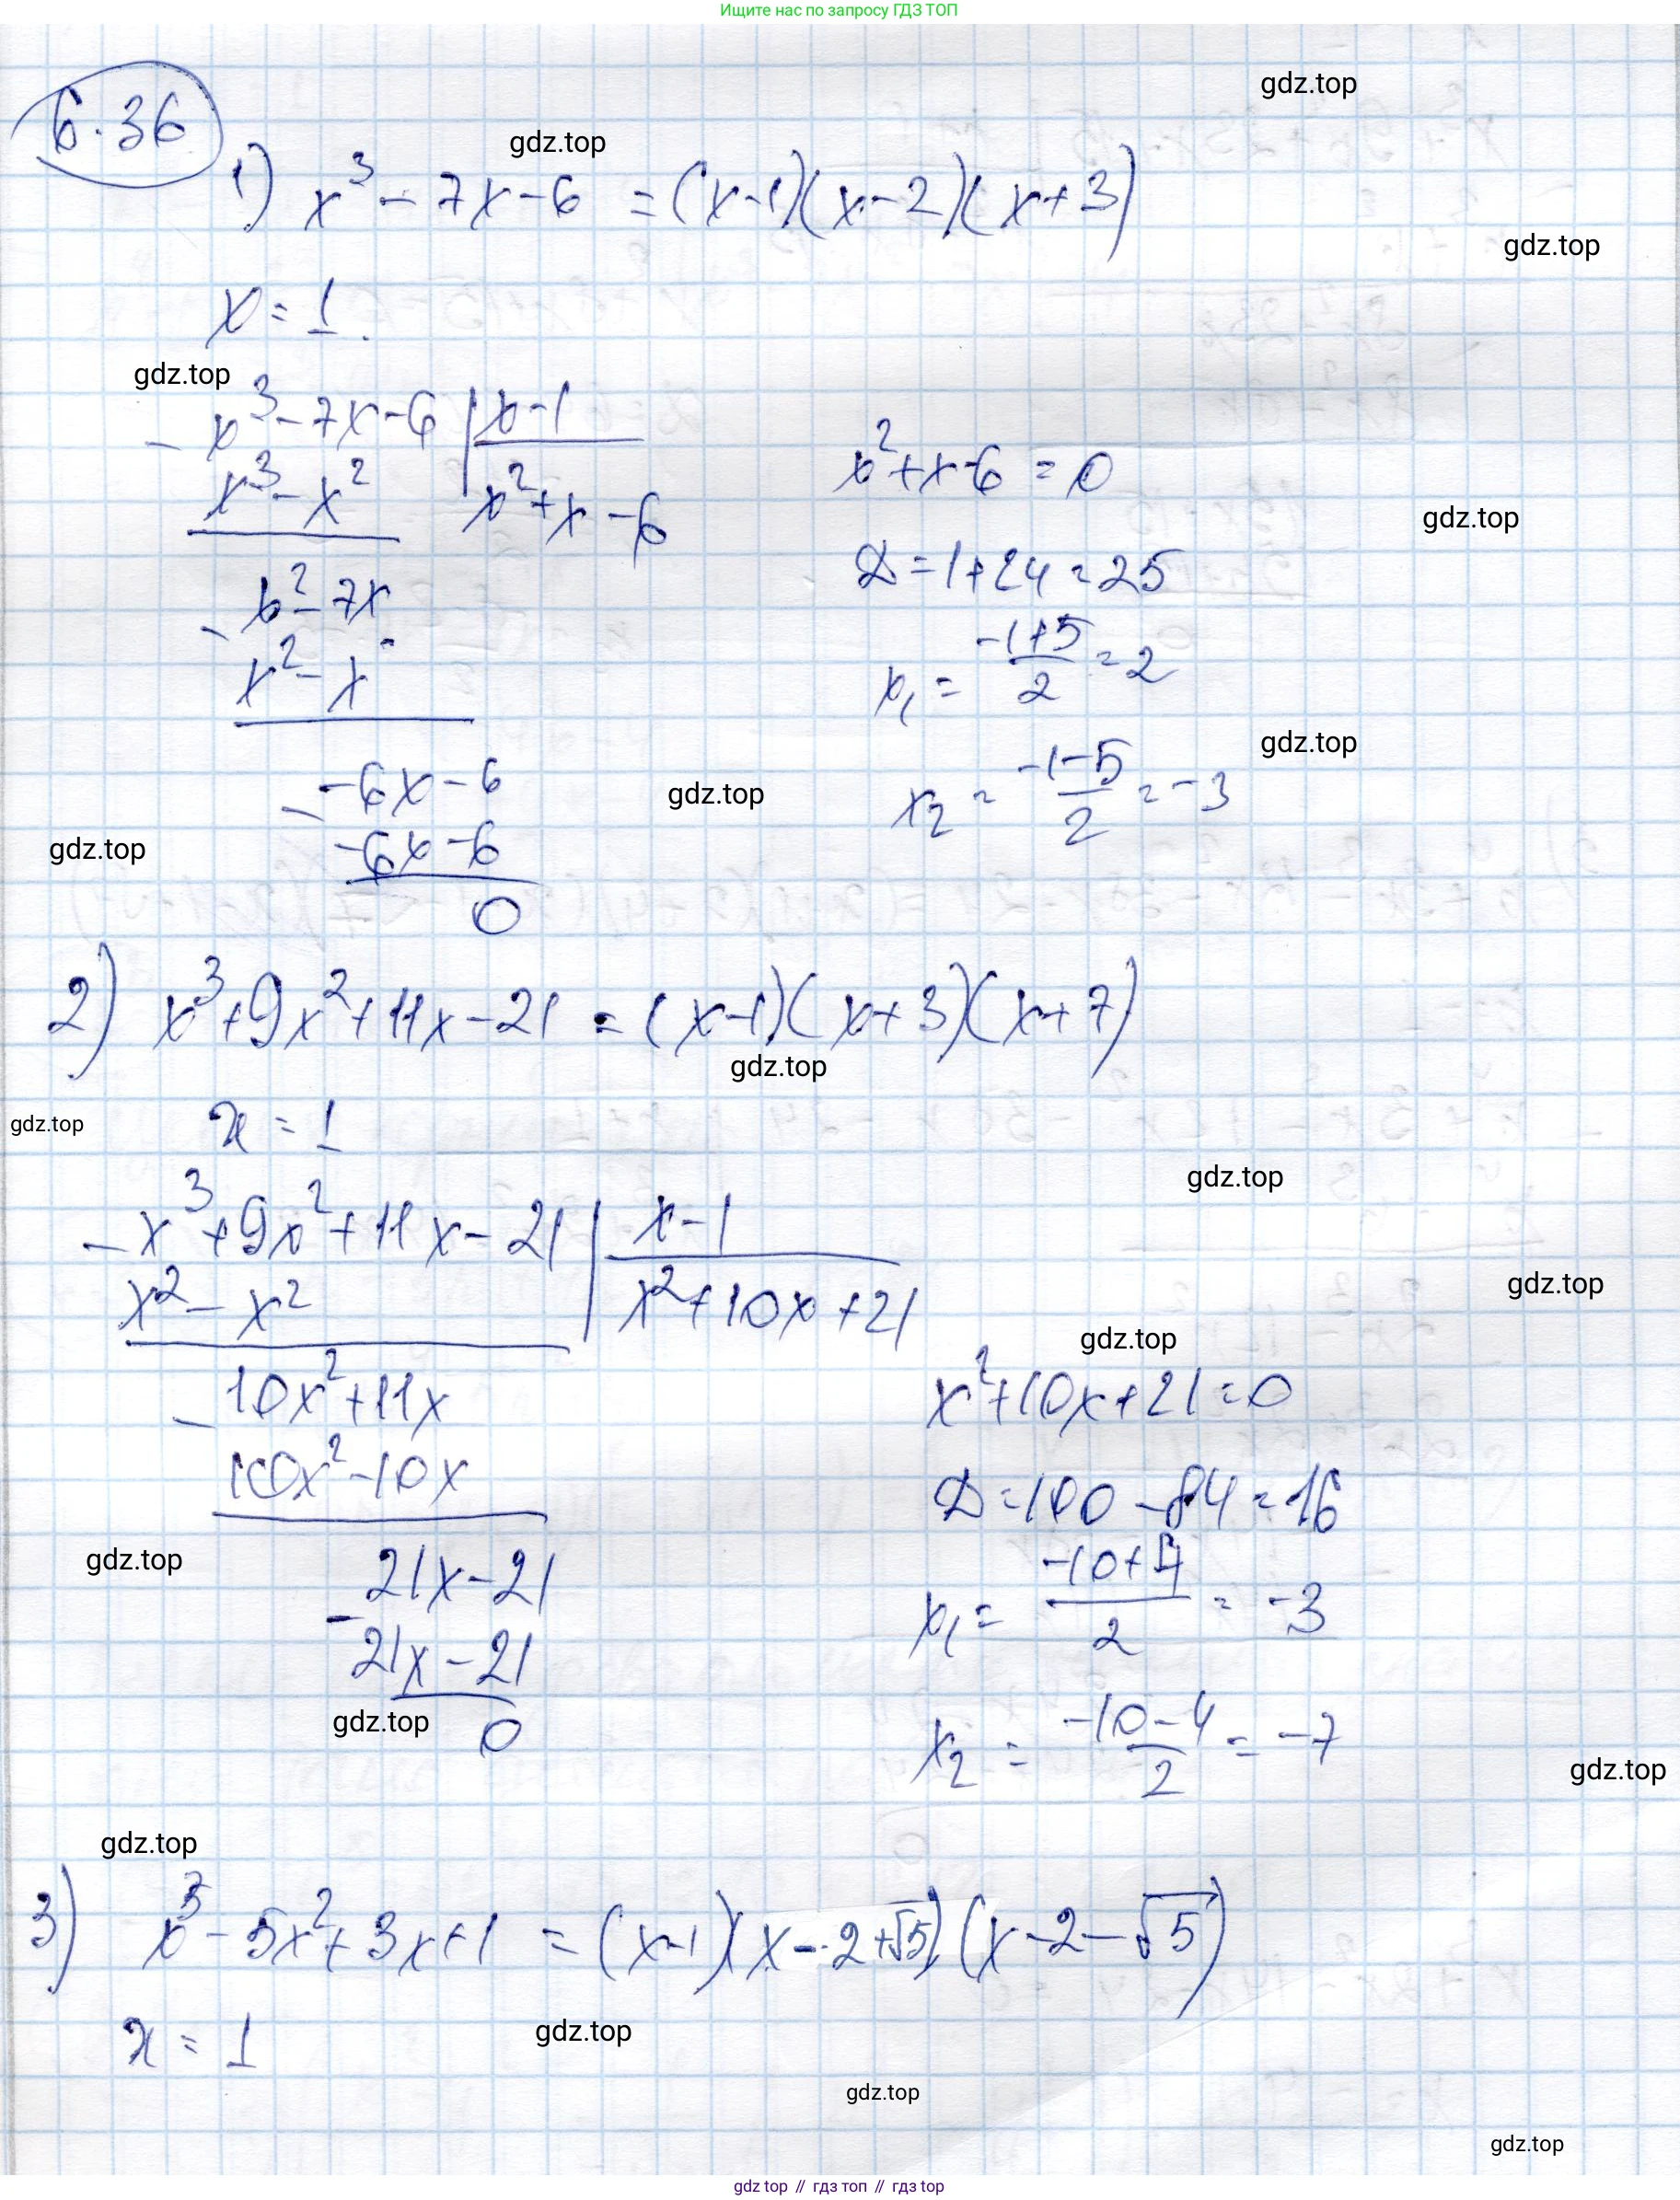 Ищите нас по запросу ГДЗ ТОП
gdz.top
6.36
gdz.top
1) x³ - 7x - 6 = (x-1)(x-2)(x+3)
gdz.top
x = 1.
gdz.top
- x³ - 7x - 6 | x-1
x³ - x² | x² + x - 6
x² + x - 6 = 0
gdz.top
- x² - 7x
x² - x
D = 1 + 24 = 25
x₁ = (-1+5)/2 = 2
gdz.top
- -6x - 6
-6x - 6
0
x₂ = (-1-5)/2 = -3
gdz.top
gdz.top
2) x³ + 9x² + 11x - 21 = (x-1)(x+3)(x+7)
gdz.top
gdz.top
x = 1
gdz.top
- x³ + 9x² + 11x - 21 | x-1
x² - x² | x² + 10x + 21
gdz.top
gdz.top
- 10x² + 11x
10x² - 10x
x² + 10x + 21 = 0
D = 100 - 84 = 16
gdz.top
- 21x - 21
21x - 21
0
x₁ = (-10+4)/2 = -3
gdz.top
x₂ = (-10-4)/2 = -7
gdz.top
gdz.top
3) x³ - 5x² + 3x + 1 = (x-1)(x-2+√5)(x-2-√5)
x = 1
gdz.top
gdz.top
gdz.top
gdz top // гдз топ // гдз top